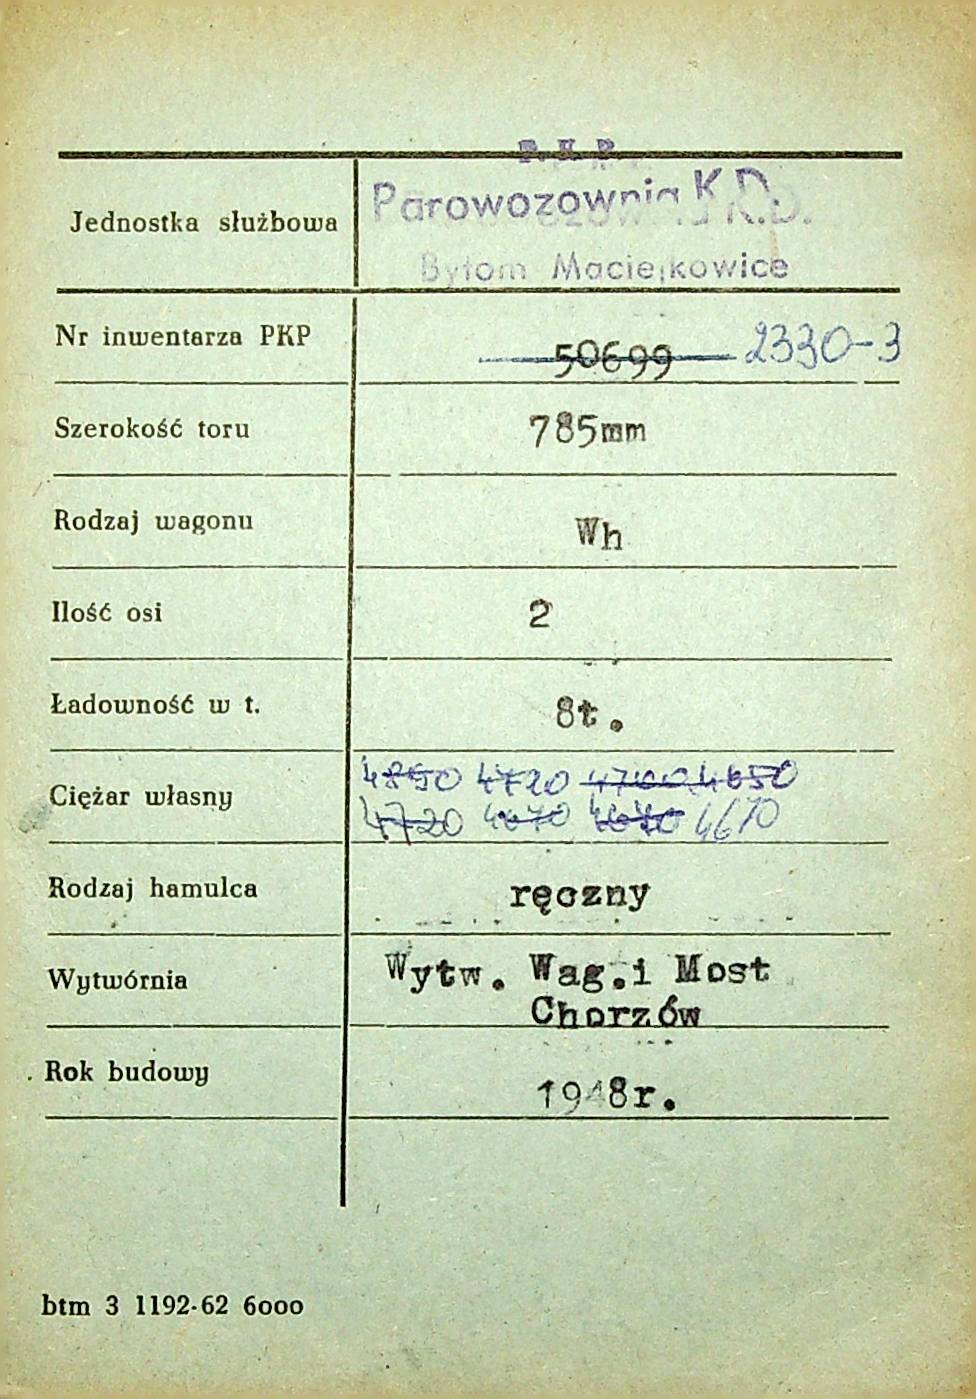 P.K.P.
Jednostka służbowa Parowozownia K.D.
Bytom Maciejkowice
Nr inwentarza PKP 50699 2330-3
Szerokość toru 785mm
Rodzaj wagonu Wh
Ilość osi 2
Ładowność w t. 8t.
4850 4720 4700 4650
Ciężar własny
4720 4670 4670
Rodzaj hamulca ręczny
Wytwórnia Wytw. Wag.i Most
Chorzów
Rok budowy 1948r.
btm 3 1192-62 6000